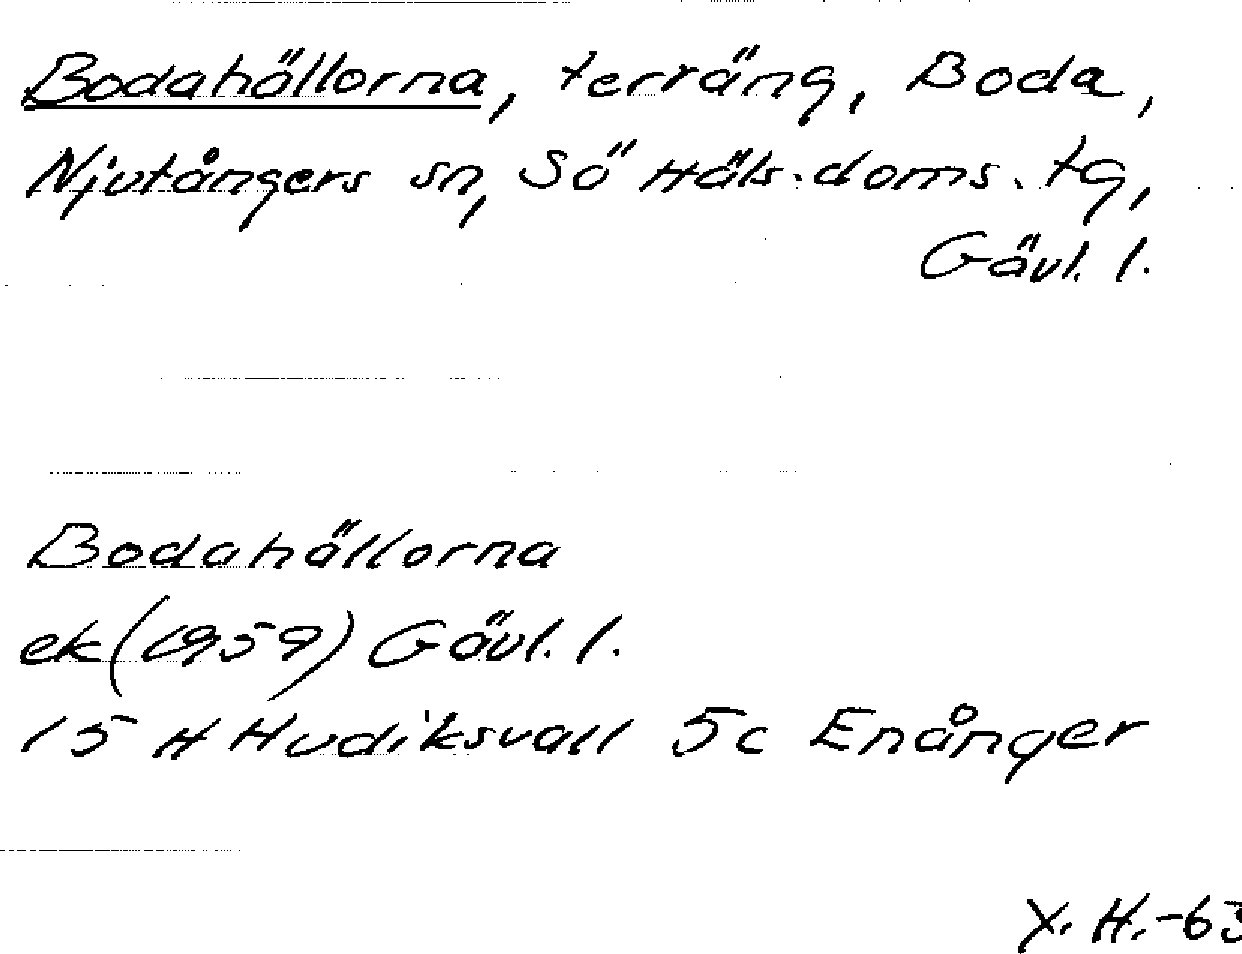 Bodahällorna, terräng, Boda,
Njutångers sn, Sö Häls. doms. tg,
Gävl. l.
Bodahällorna
ek (1959) Gävl. l.
15 H Hudiksvall 5c Enånger
Y. H. -63